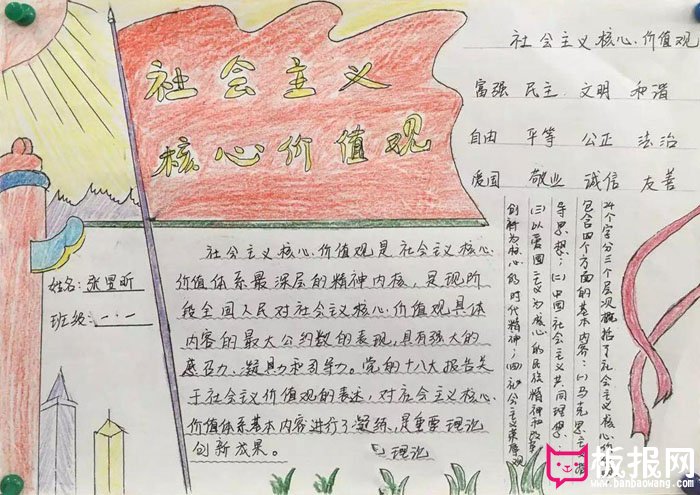 社会主义
核心价值观
社会主义核心价值观
富强 民主 文明 和谐
自由 平等 公正 法治
爱国 敬业 诚信 友善
24个字分三个层次概括了社会主义核心价值观
包含四个方面的基本内容:(一)马克思主义指
导思想;(二)中国社会主义共同理想;
(三)以爱国主义为核心的民族精神和改革
创新为核心的时代精神;(四)社会主义荣辱观
姓名:张里昕
班级:一·一
社会主义核心价值观是社会主义核心
价值体系最深层的精神内核,是现阶
段全国人民对社会主义核心价值观具体
内容的最大公约数的表现,具有强大的
感召力、凝具力和引导力。党的十八大报告关
于社会主义价值观的表述,对社会主义核心
价值体系基本内容进行了凝练,是重要理论
创新成果。
理论
板报网
www.banbaowang.com